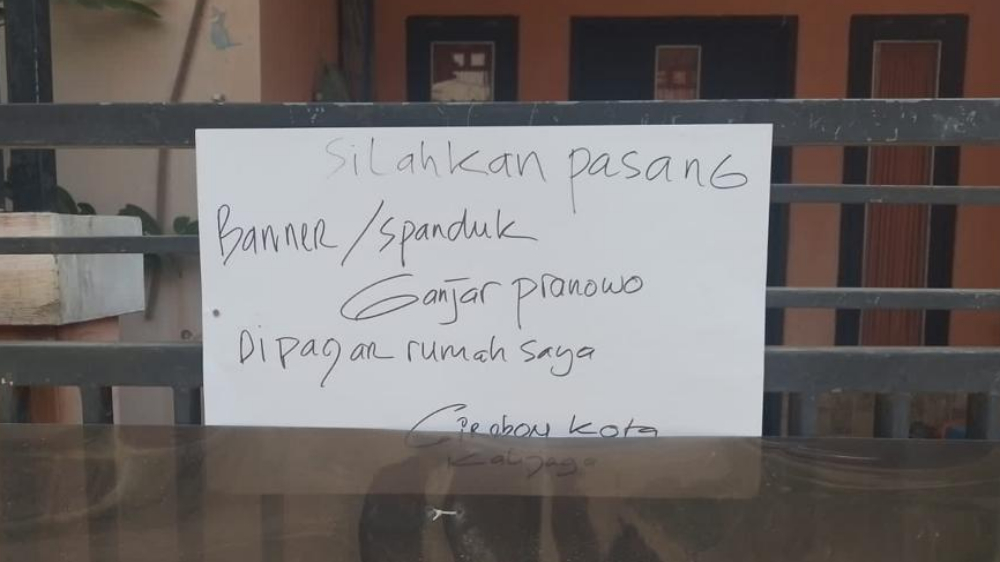 Silahkan pasang
Banner/spanduk
Ganjar pranowo
Dipagar rumah saya
Cirebon kota
Kalijaga